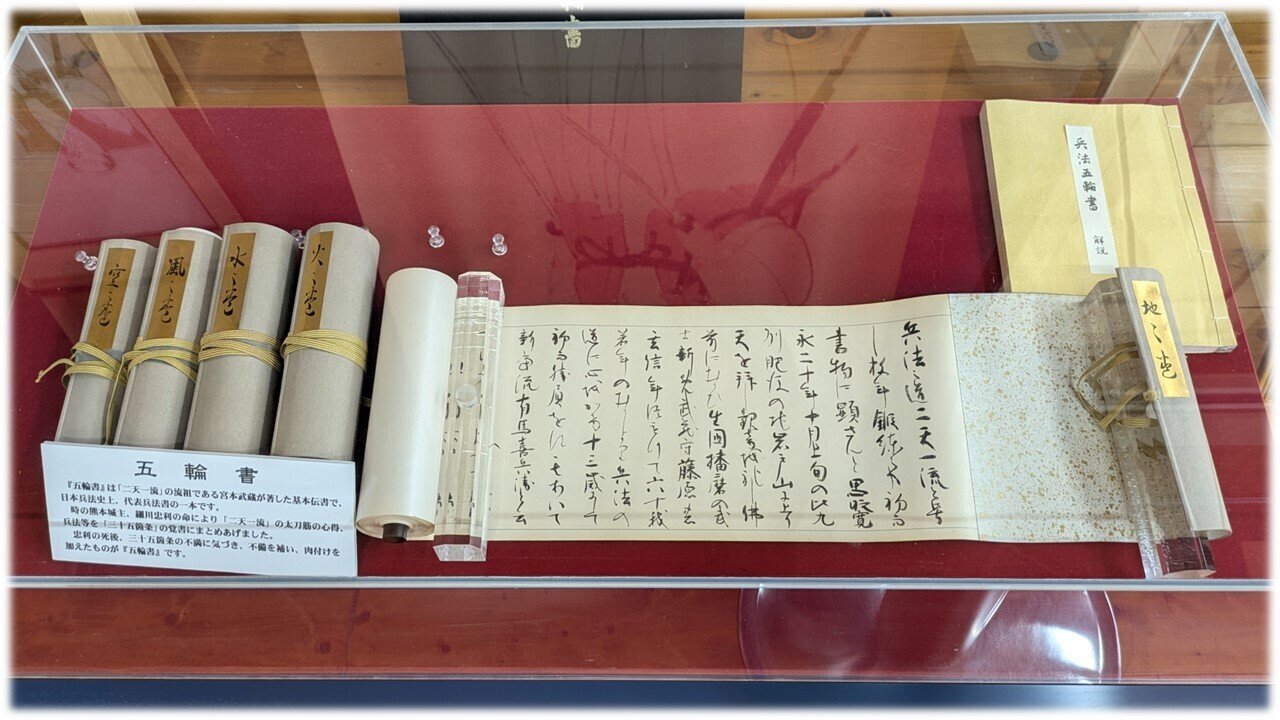 書
兵法五輪書
解説
地之巻
火之巻
水之巻
風之巻
空之巻
兵法之道二天一流と号
し数年鍛錬之事初而
書物に顕さんと思寛
永二十年十月上旬の比九
州肥後の地岩戸山に上り
天を拝し観音を礼し佛
前にむかひ生國播磨の武
士新免武蔵守藤原の
玄信年つもりて六十
若年のむかしより兵法の
道に心をかけ十三歳にして
初而勝負をす其あいて
新当流有馬喜兵衛と云
五輪書
『五輪書』は「二天一流」の流祖である宮本武蔵が著した基本伝書で、
日本兵法史上、代表兵法書の一本です。
時の熊本城主、細川忠利の命により「二天一流」の太刀筋の心得、
兵法等を「三十五箇条」の覚書にまとめあげました。
忠利の死後、三十五箇条の不満に気づき、不備を補い、肉付けを
加えたものが『五輪書』です。